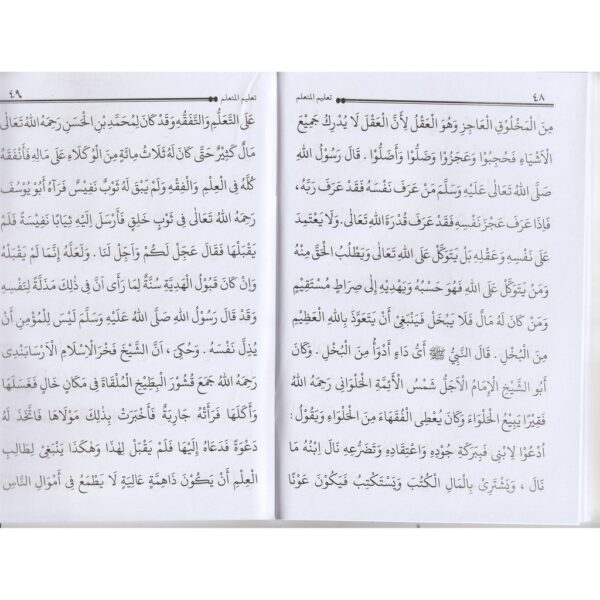 ٤٨ تعليم المتعلم
مِنَ الْمَخْلُوْقِ الْعَاجِزِ وَهُوَ الْعَقْلُ لِأَنَّ الْعَقْلَ لَا يُدْرِكُ جَمِيْعَ
الْاَشْيَاءِ فَحُجِبُوْا وَعَجَزُوْا وَضَلُّوْا وَأَضَلُّوْا . قَالَ رَسُوْلُ اللهِ
صَلَّى اللهُ تَعَالَى عَلَيْهِ وَسَلَّمَ مَنْ عَرَفَ نَفْسَهُ فَقَدْ عَرَفَ رَبَّهُ ،
فَاِذَا عَرَفَ عَجْزَ نَفْسِهِ فَقَدْ عَرَفَ قُدْرَةَ اللهِ تَعَالَى. وَلَا يَعْتَمِدُ
عَلَى نَفْسِهِ وَعَقْلِهِ بَلْ يَتَوَكَّلُ عَلَى اللهِ تَعَالَى وَيَطْلُبُ الْحَقَّ مِنْهُ
وَمَنْ يَتَوَكَّلْ عَلَى اللهِ فَهُوَ حَسْبُهُ وَيَهْدِيْهِ إِلَى صِرَاطٍ مُسْتَقِيْمٍ
وَمَنْ كَانَ لَهُ مَالٌ فَلَا يَبْخَلْ فَيَنْبَغِىْ أَنْ يَتَعَوَّذَ بِاللهِ الْعَظِيْمِ
مِنَ الْبُخْلِ . قَالَ النَّبِيُّ ﷺ أَىُّ دَاءٍ أَدْوَأُ مِنَ الْبُخْلِ . وَكَانَ
أَبُو الشَّيْخِ الْاِمَامُ الْاَجَلُّ شَمْسُ الْأَئِمَّةِ الْحَلْوَانِى رَحِمَهُ اللهُ
فَقِيْرًا يَبِيْعُ الْحَلْوَاءَ وَكَانَ يُعْطِى الْفُقَهَاءَ مِنَ الْحَلْوَاءِ وَيَقُوْلُ :
اُدْعُوْا لِابْنِى فَبِبَرَكَةِ جُوْدِهِ وَاعْتِقَادِهِ وَتَضَرُّعِهِ نَالَ اِبْنُهُ مَا
نَالَ ، وَيَشْتَرِىْ بِالْمَالِ الْكُتُبَ وَيَسْتَكْتِبُ فَيَكُوْنُ عَوْنًا
تعليم المتعلم ٤٩
عَلَى التَّعَلُّمِ وَالتَّفَقُّهِ وَقَدْ كَانَ لِمُحَمَّدِ بْنِ الْحَسَنِ رَحِمَهُ اللهُ تَعَالَى
مَالٌ كَثِيْرٌ حَتَّى كَانَ لَهُ ثَلَاثُ مِائَةٍ مِنَ الْوُكَلَاءِ عَلَى مَالِهِ فَأَنْفَقَهُ
كُلَّهُ فِى الْعِلْمِ وَالْفِقْهِ وَلَمْ يَبْقَ لَهُ ثَوْبٌ نَفِيْسٌ فَرَآهُ أَبُوْ يُوْسُفَ
رَحِمَهُ اللهُ تَعَالَى فِى ثَوْبٍ خَلِقٍ فَأَرْسَلَ اِلَيْهِ ثِيَابًا نَفِيْسَةً فَلَمْ
يَقْبَلْهَا فَقَالَ عُجِّلَ لَكُمْ وَاُجِّلَ لَنَا . وَلَعَلَّهُ إِنَّمَا لَمْ يَقْبَلْهُ
وَاِنْ كَانَ قَبُوْلُ الْهَدِيَّةِ سُنَّةً لِمَا رَأَى اَنَّ فِى ذٰلِكَ مَذَلَّةً لِنَفْسِهِ
وَقَدْ قَالَ رَسُوْلُ اللهِ صَلَّى اللهُ عَلَيْهِ وَسَلَّمَ لَيْسَ لِلْمُؤْمِنِ أَنْ
يُذِلَّ نَفْسَهُ . وَحُكِيَ ، اَنَّ الشَّيْخَ فَخْرَ الْاِسْلَامِ الْاَرْسَابَنْدِى
رَحِمَهُ اللهُ جَمَعَ قُشُوْرَ الْبِطِّيْخِ الْمُلْقَاةَ فِى مَكَانٍ خَالٍ فَغَسَلَهَا
وَاَكَلَهَا فَرَأَتْهُ جَارِيَةٌ فَأَخْبَرَتْ بِذٰلِكَ مَوْلَاهَا فَاتَّخَذَ لَهُ
دَعْوَةً فَدَعَاهُ اِلَيْهَا فَلَمْ يَقْبَلْ لِهٰذَا وَهٰكَذَا يَنْبَغِىْ لِطَالِبِ
الْعِلْمِ أَنْ يَكُوْنَ ذَاهِمَّةٍ عَالِيَةٍ لَا يَطْمَعُ فِى أَمْوَالِ النَّاسِ